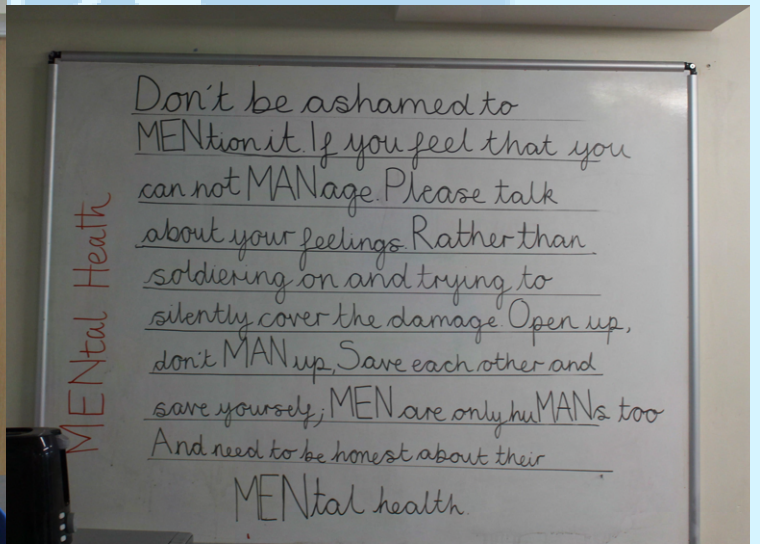 MENtal Health
Don't be ashamed to
MENtion it. If you feel that you
can not MANage. Please talk
about your feelings. Rather than
soldiering on and trying to
silently cover the damage. Open up,
don't MAN up, Save each other and
save yourself; MEN are only huMANs too
And need to be honest about their
MENtal health.